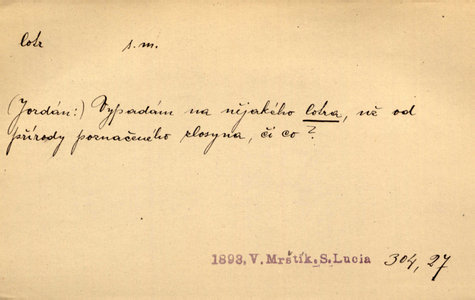 lotr s.m.
(Jordán:) Vypadám na nějakého lotra, ně od
přírody poznačeného zlosyna, či co?
1893, V. Mrštík. S. Lucia 304, 27